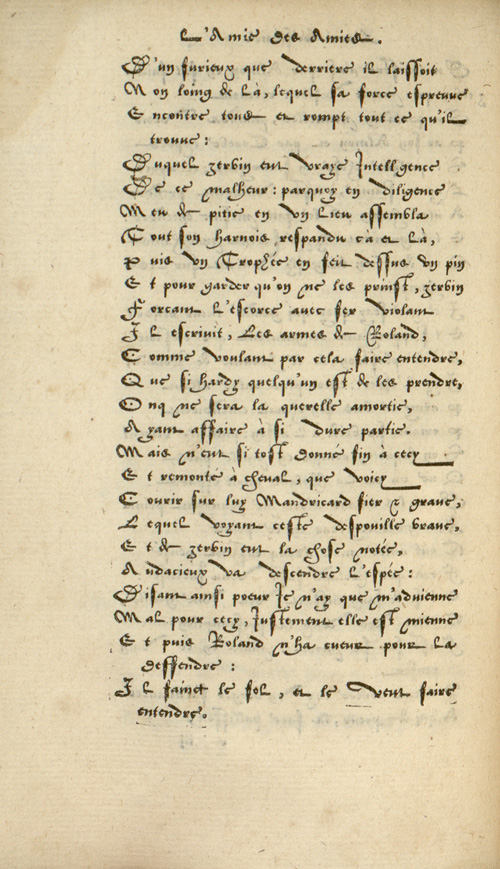 L'Amie des Amies.
D'un furieux que derriere il laissoit
Non loing de là, lequel sa force espreuve
Encontre tous et rompt tout ce qu'il
trouve:
Duquel zerbin eut vraye Intelligence
De ce malheur: parquoy en diligence
Meu de pitie en un lieu assembla
Tout son harnois respandu ca et là,
Puis un Trophée en feit dessus un pin
Et pour garder qu'on ne les prinst, zerbin
Forcant l'escorce avec fer violant
Il escrivit, Les armes de Roland,
Comme voulant par cela faire entendre,
Que si hardy quelqu'un est de les prendre,
Onq ne sera la querelle amortie,
Ayant affaire à si dure partie.
Mais n'eut si tost donné fin à cecy
Et remonté à cheval, que voicy
Courir sur luy Mandricard fier & grave,
Lequel voyant ceste despouille brave,
Et de zerbin eut la chose notée,
Audacieux va descendre l'espée:
Disant ainsi pœur Je n'ay que m'advienne
Mal pour cecy, Justement elle est mienne
Et puis Roland n'ha cueur pour la
deffendre:
Il fainct le fol, et le veut faire
entendre.